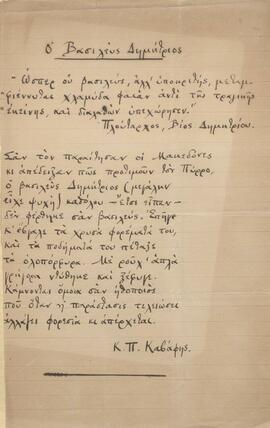 Ὁ Βασιλεὺς Δημήτριος
Ὥσπερ οὐ βασιλεύς, ἀλλ' ὑποκριτής, μεταμ-
φιέννυται χλαμύδα φαιὰν ἀντὶ τῆς τραγικῆς
ἐκείνης, καὶ διαλαθὼν ὑπεχώρησεν.
Πλούταρχος, Βίος Δημητρίου.
Σὰν τὸν παραίτησαν οἱ Μακεδόνες
κι ἀπέδειξαν πὼς προτιμοῦν τὸν Πύρρο,
ὁ βασιλεὺς Δημήτριος (μεγάλην
εἶχε ψυχή) καθόλου — ἔτσι εἶπαν —
δὲν φέρθηκε σὰν βασιλεύς. Ἐπῆγε
κ' ἔβγαλε τὰ χρυσᾶ φορέματά του,
καὶ τὰ ποδήματά του πέταξε
τὰ ὁλοπόρφυρα. Μὲ ροῦχ' ἁπλᾶ
γρήγορα ντύθηκε καὶ ξέφυγε.
Κάμνοντας ὅμοια σὰν ἠθοποιὸς
ποῦ ὅταν ἡ παράστασις τελειώσει
ἀλλάζει φορεσιὰ κι ἀπέρχεται.
Κ. Π. Καβάφης.